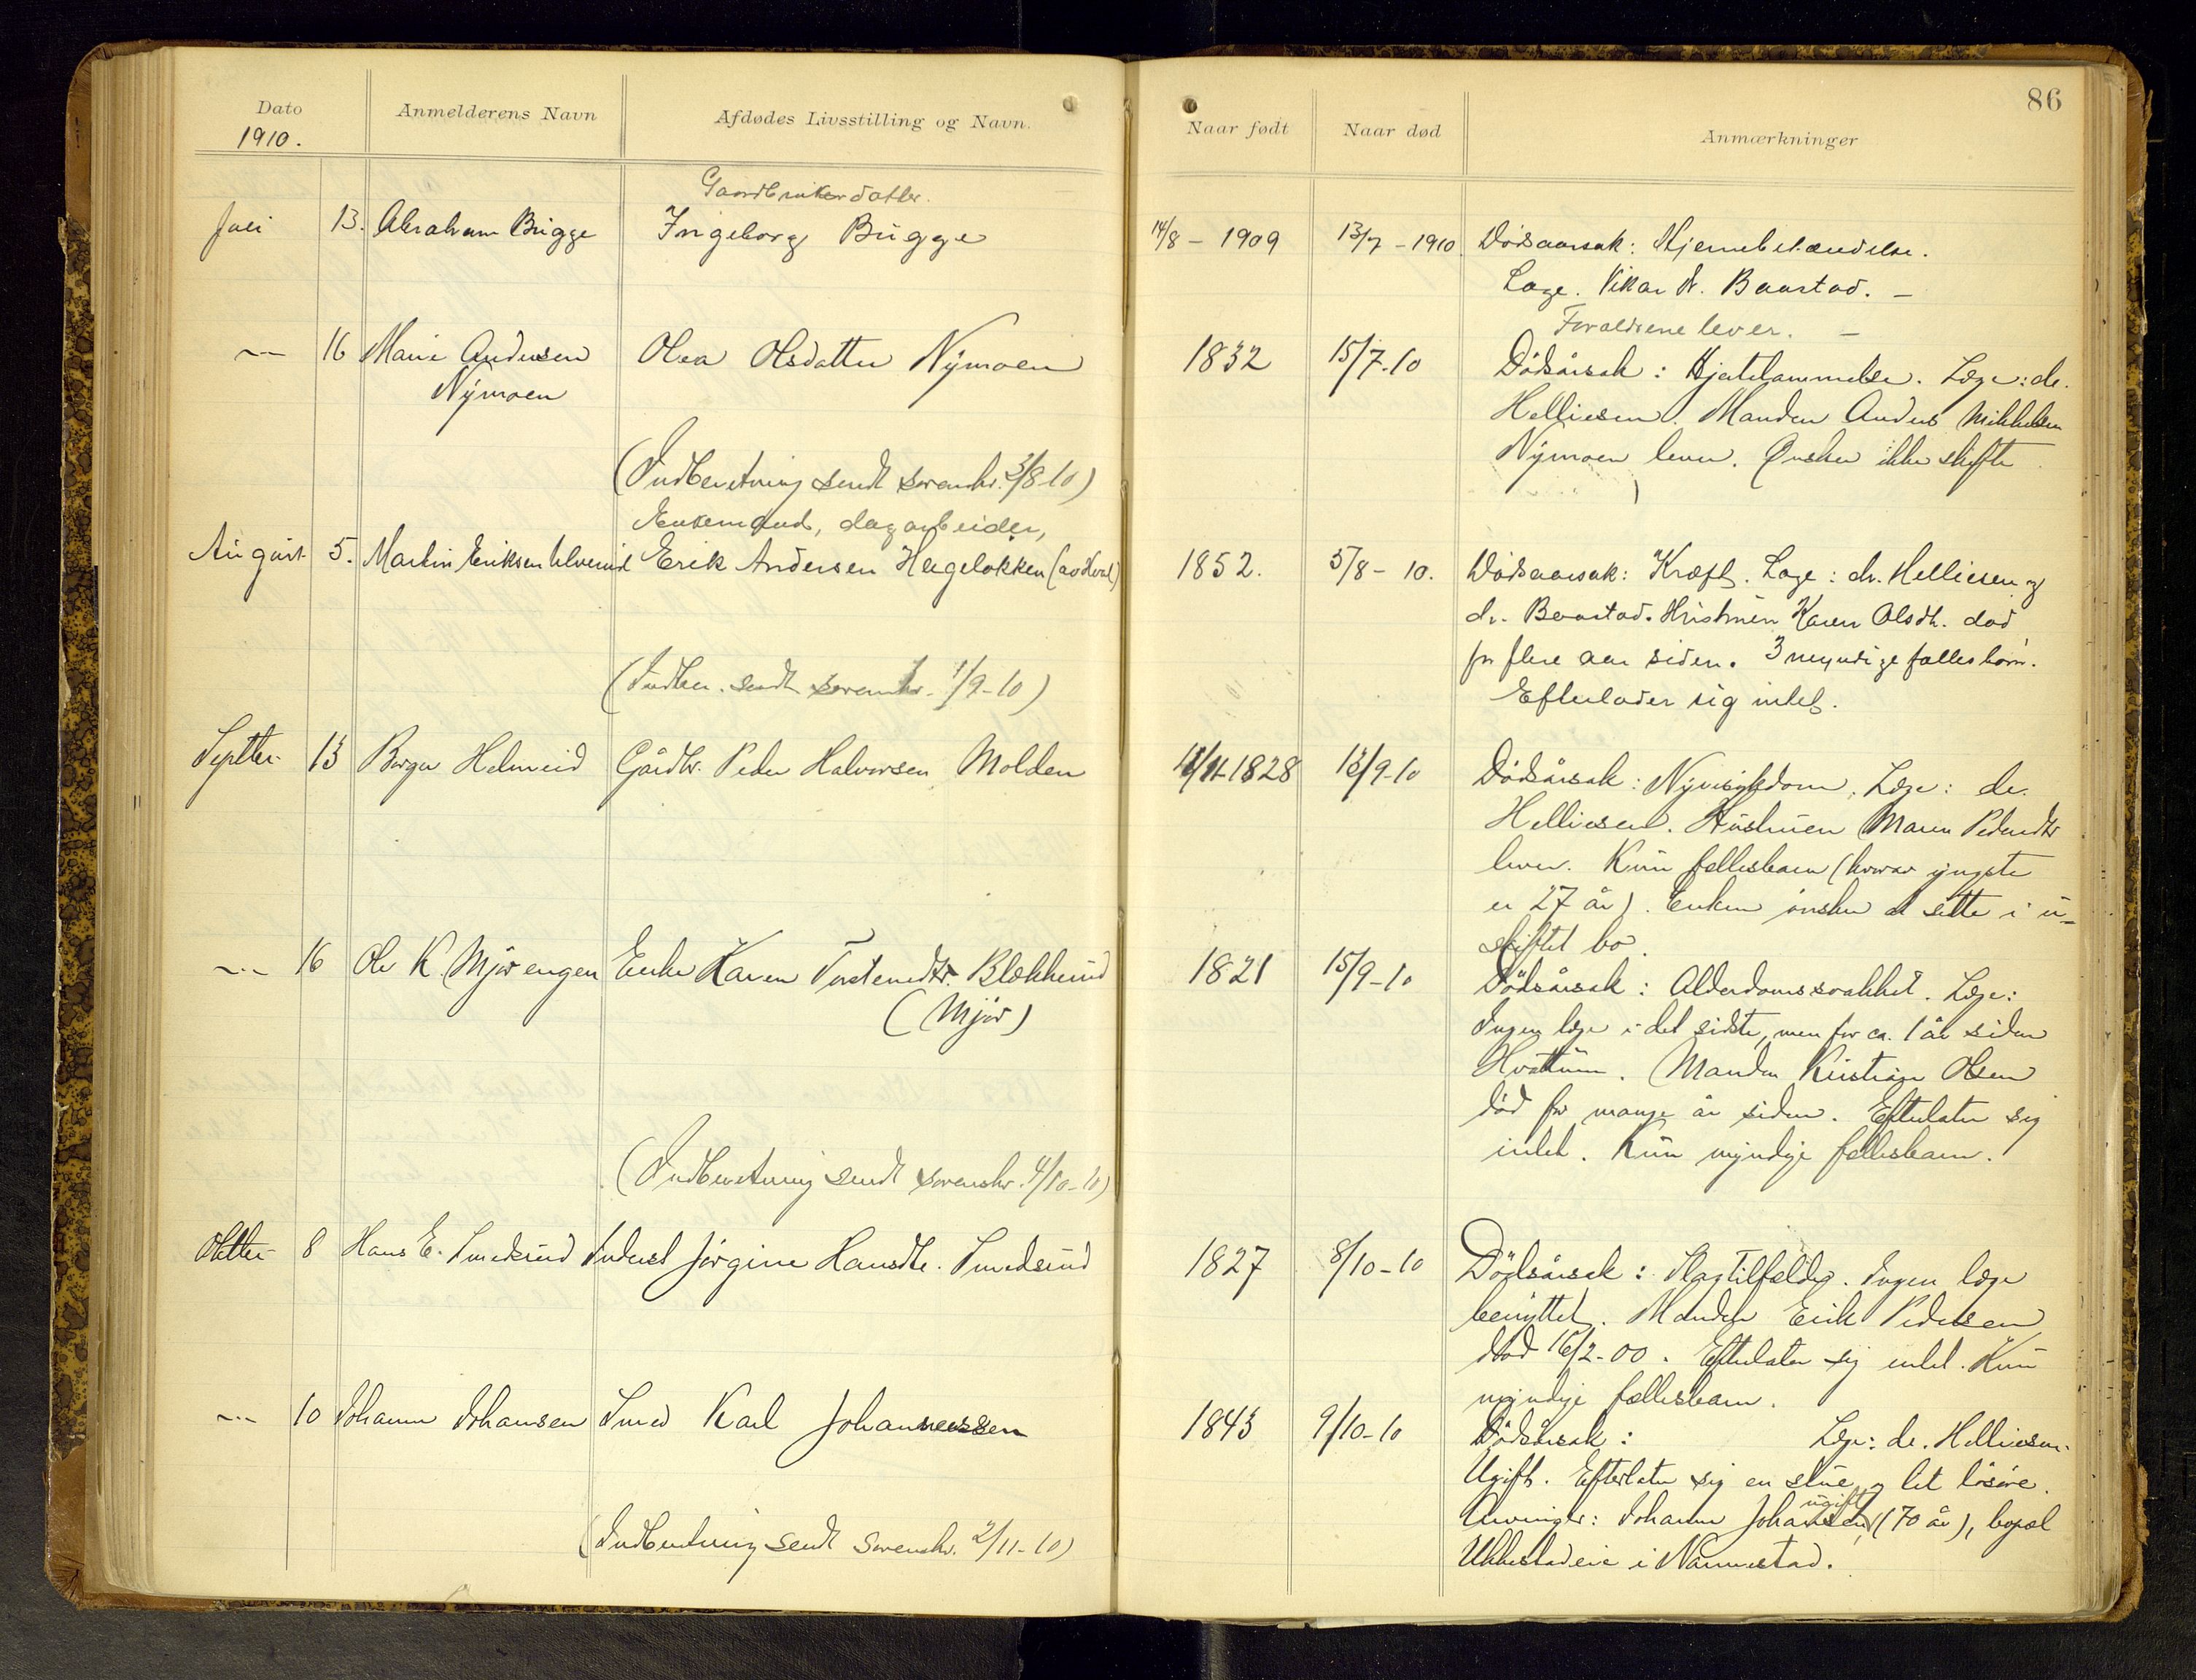 86
Dato
1910.
Anmelderens Navn
Afdødes Livsstilling og Navn.
Naar født
Naar død
Anmærkninger
Gaardbrukerdatter.
Juli 13. Abraham Bugge Ingeborg Bugge 14/8 - 1909 13/7 - 1910. Dødsaarsak: Hjernebetændelse.
Læge. Vikar N. Baastad. —
Forældrene lever. —
-"- 16 Marie Andersen Olea Olsdatter Nymoen 1832 15/7.10 Dödsårsak: Hjertelammelse. Læge: dr.
Nymoen
Helliesen. Manden Anders Mikkelsen
Nymoen lever. Ønsker ikke skifte
(Indberetning sendt sorenskr. 3/8-10)
Enkemand, dagarbeider,
August 5. Martin Eriksen Ulverud Erik Andersen Hegeløkken (av Hval) 1852. 5/8 - 10. Dødsaarsak: Kræft. Læge: dr. Helliesen og
dr. Baastad. Hustruen Karen Olsdtr. død
for flere aar siden. 3 myndige fællesbarn.
Efterlader sig intet.
(Indber. sendt sorenskr. 1/9-10)
Septbr. 13 Borger Helmeid Gårdbr. Peder Halvorsen Molden /11-1828 13/9-10 Dödsårsak: Nyresykdom. Læge: dr.
Helliesen. Hustruen Maren Pedersdtr
lever. Kun fellesbarn (hvorav yngste
er 27 år). Enken önsker at sitte i u-
skiftet bo.
-"- 16 Ole K. Mjörengen Enke Karen Torstensdtr. Blekkerud 1821 15/9-10 Dödsårsak: Alderdomssvakhet. Læge:
(Mjör)
Ingen læge i det sidste, men for ca. 1 år siden
Hvattum. Manden Kristian Olsen
död for mange år siden. Efterlater sig
intet. Kun myndige fellesbarn.
(Indberetning sendt sorenskr. 4/10-10)
Oktbr. 8 Hans E. Smedsrud Inderst Jörgine Hansdtr. Smedsrud 1827 8/10-10 Dödsårsak: Slagtilfælde. Ingen læge
benyttet. Manden Erik Pedersen
död 16/2-00. Efterlater sig intet. Kun
myndige fællesbarn.
-"- 10 Johanne Johansen Smed Karl Johannessen 1843 9/10-10 Dödsårsak: Læge: dr. Helliesen.
Ugift. Efterlater sig en stue og let lösöre.
ugift
Arvinger: Johanne Johansen, (70 år), bopæl
Ukkestadeie i Nannestad.
(Indberetning sendt sorenskr. 2/11-10)